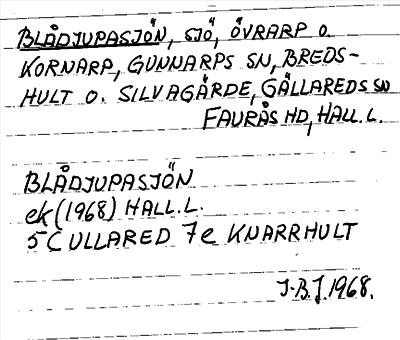 BLÅDJUPASJÖN, SJÖ, ÖVRARP O.
KORNARP, GUNNARPS SN, BREDS-
HULT O. SILVAGÄRDE, GÄLLAREDS SN
FAURÅS HD, HALL.L.
BLÅDJUPASJÖN
ek (1968) HALL.L.
5C ULLARED 7e KNARRHULT
J.B.J. 1968.